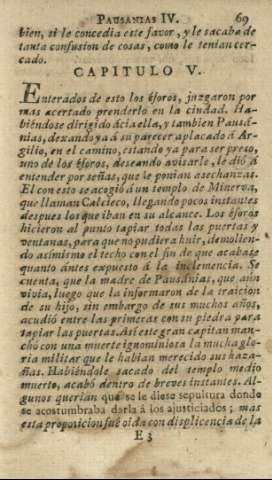 PAUSANIAS IV. 69
bien, si le concedia este favor, y le sacaba de
tanta confusion de cosas, como le tenian cer-
cado.
CAPITULO V.
Enterados de esto los éforos, juzgaron por
mas acertado prenderlo en la ciudad. Ha-
biéndose dirigido ácia ella, y tambien Pausá-
nias, dexando ya á su parecer aplacado á Ar-
gilio, en el camino, estando ya para ser preso,
uno de los éforos, deseando avisarle, le dió á
entender por señas, que le ponian asechanzas.
El con esto se acogió á un templo de Minerva,
que llaman Calcieco, llegando pocos instantes
despues los que iban en su alcance. Los éforos
hicieron al punto tapiar todas las puertas y
ventanas, para que no pudiera huir, demolien-
do asímismo el techo con el fin de que acabase
quanto ántes expuesto á la inclemencia. Se
cuenta, que la madre de Pausánias, que aun
vivia, luego que la informaron de la traicion
de su hijo, sin embargo de sus muchos años,
acudió entre las primeras con su piedra para
tapiar las puertas. Así este gran capitan man-
chó con una muerte ignominiosa la mucha glo-
ria militar que le habian merecido sus haza-
ñas. Habiéndole sacado del templo medio
muerto, acabó dentro de breves instantes. Al-
gunos querian que se le diese sepultura donde
se acostumbraba darla á los ajusticiados; mas
esta proposicion fué oida con displicencia de la
E 3